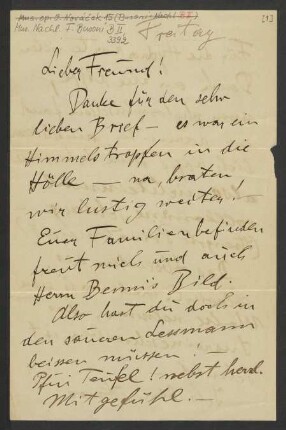 Mus. Nachl. F. Busoni B II
3392
Freitag
Lieber Freund!
Danke für den sehr
lieben Brief – es war ein
Himmelstropfen in die
Hölle – na, braten
wir lustig weiter! –
Euer Familienbefinden
freut mich und auch
Herrn Benni's Bild.
Also hast du doch in
den saueren Lessmann
beissen müssen!
Pfui Teufel! nebst herzl.
Mitgefühl. –